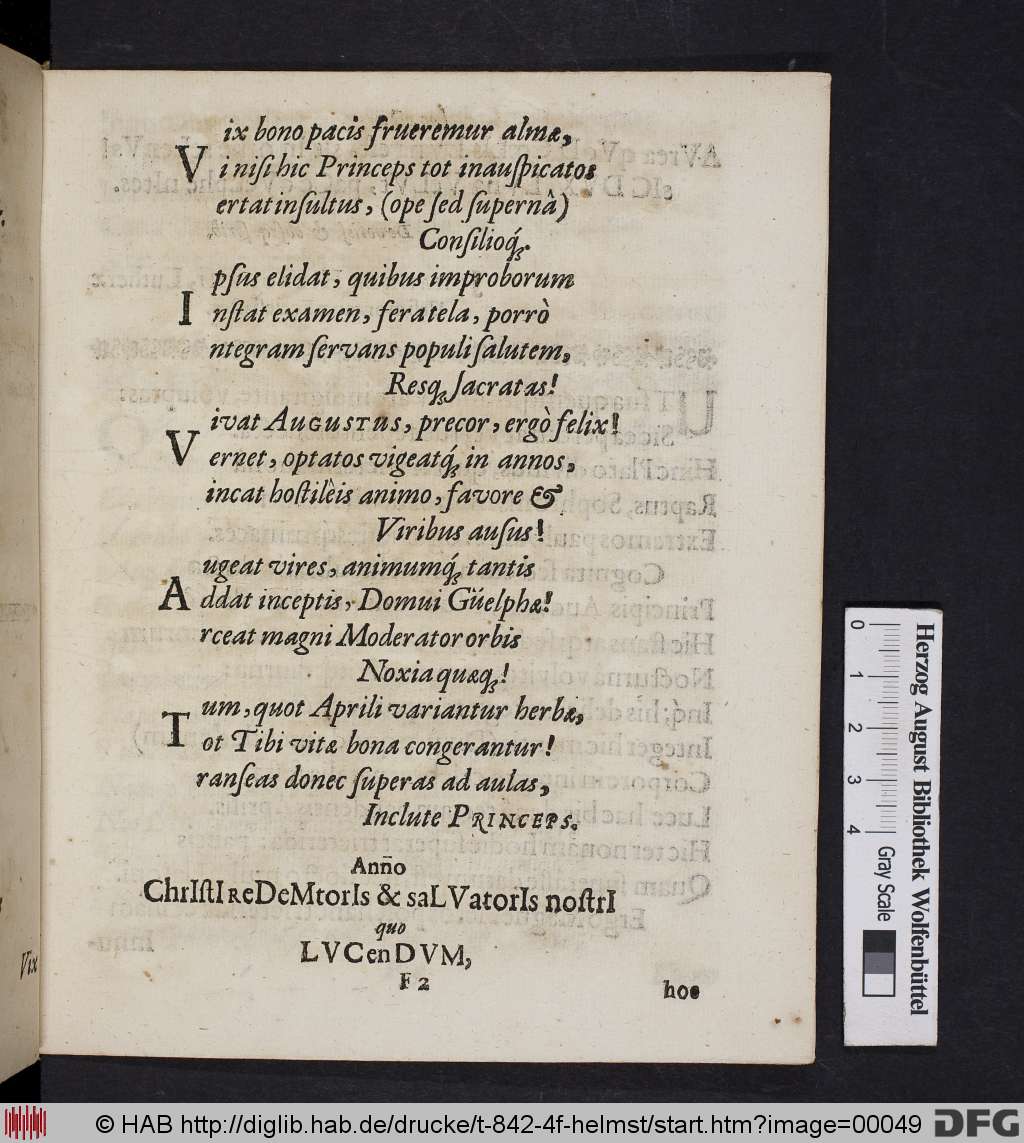 ix bono pacis frueremur almæ,
V i niſi hic Princeps tot inauſpicatos
ertat inſultus, (ope ſed ſupernâ)
Conſilioq́;.
pſus elidat, quibus improborum
I nſtat examen, fera tela, porrò
ntegram ſervans populi ſalutem,
Resq; ſacratas!
ivat AUGUSTUS, precor, ergò felix!
V ernet, optatos vigeatq́; in annos,
incat hoſtilèis animo, favore &
Viribus auſus!
ugeat vires, animumq́; tantis
A ddat inceptis, Domui Güelphæ!
rceat magni Moderator orbis
Noxia quæq;!
um, quot Aprili variantur herbæ,
T ot Tibi vitæ bona congerantur!
ranſeas donec ſuperas ad aulas,
Inclute PRINCEPS.
Anño
ChrIſtI ReDeMtorIs & saLVatorIs noſtrI
quo
LVCenDVM,
F 2
hoc
Vix
Herzog August Bibliothek Wolfenbüttel
0 1 2 3 4
Gray Scale
© HAB http://diglib.hab.de/drucke/t-842-4f-helmst/start.htm?image=00049
DFG